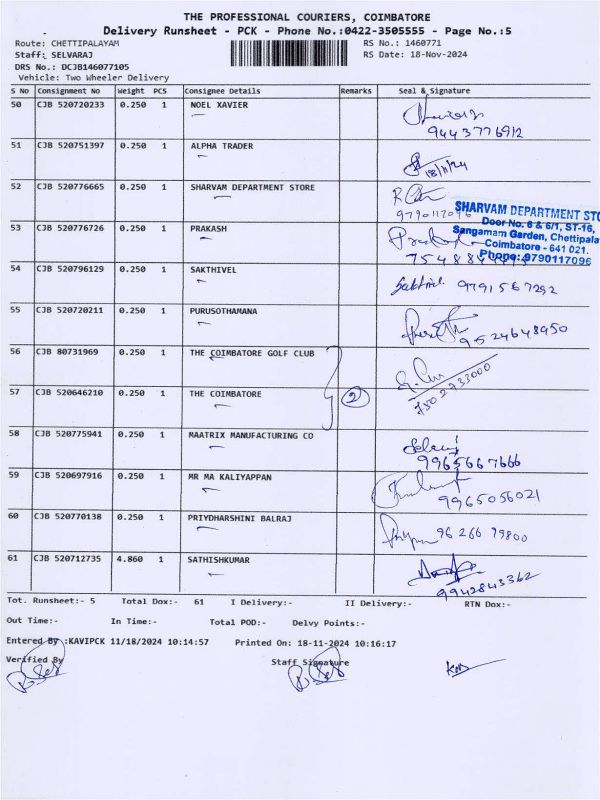 THE PROFESSIONAL COURIERS, COIMBATORE
Delivery Runsheet - PCK - Phone No.:0422-3505555 - Page No.:5
Route: CHETTIPALAYAM RS No.: 1460771
Staff: SELVARAJ RS Date: 18-Nov-2024
DRS No.: DCJB146077105
Vehicle: Two Wheeler Delivery
S No Consignment No Weight PCS Consignee Details Remarks Seal & Signature
50 CJB 520720233 0.250 1 NOEL XAVIER
9443776912
51 CJB 520751397 0.250 1 ALPHA TRADER
18/11/24
52 CJB 520776665 0.250 1 SHARVAM DEPARTMENT STORE
9790117096
SHARVAM DEPARTMENT STO
Door No. 6 & 6/1, ST-16,
Sangamam Garden, Chettipala
Coimbatore - 641 021.
Phone: 9790117096
53 CJB 520776726 0.250 1 PRAKASH
54 CJB 520796129 0.250 1 SAKTHIVEL
Sakthivel 9791567292
55 CJB 520720211 0.250 1 PURUSOTHAMANA
9524648950
56 CJB 80731969 0.250 1 THE COIMBATORE GOLF CLUB
57 CJB 520646210 0.250 1 THE COIMBATORE 2
7502733000
58 CJB 520775941 0.250 1 MAATRIX MANUFACTURING CO
9965667666
59 CJB 520697916 0.250 1 MR MA KALIYAPPAN
9965056021
60 CJB 520770138 0.250 1 PRIYDHARSHINI BALRAJ
96 266 79800
61 CJB 520712735 4.860 1 SATHISHKUMAR
9942843362
Tot. Runsheet:- 5 Total Dox:- 61 I Delivery:- II Delivery:- RTN Dox:-
Out Time:- In Time:- Total POD:- Delvy Points:-
Entered By :KAVIPCK 11/18/2024 10:14:57 Printed On: 18-11-2024 10:16:17
Verified By Staff Signature